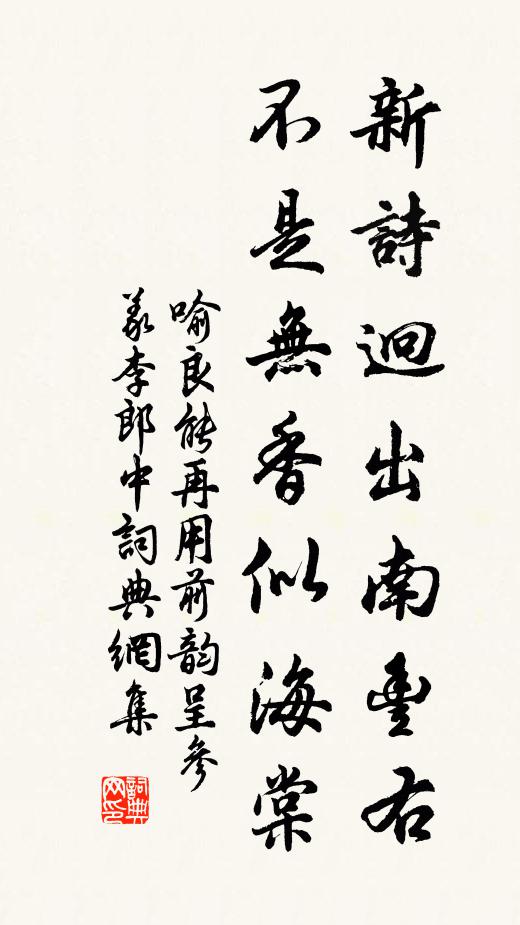 新詩迥出南豐右
不是無香似海棠
喻良能再用前韵呈參
義李郎中詞典網集
詞典网印